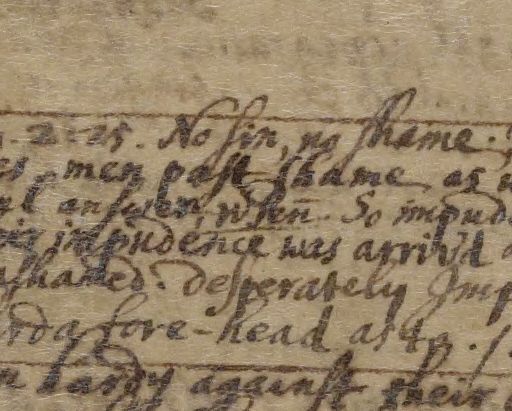 2:25. No sin, no shame.
men past shame as
answer, when. So impud
impudence was arriv'd
ashamed. desperately Imp
fore-head as to
hardy against their